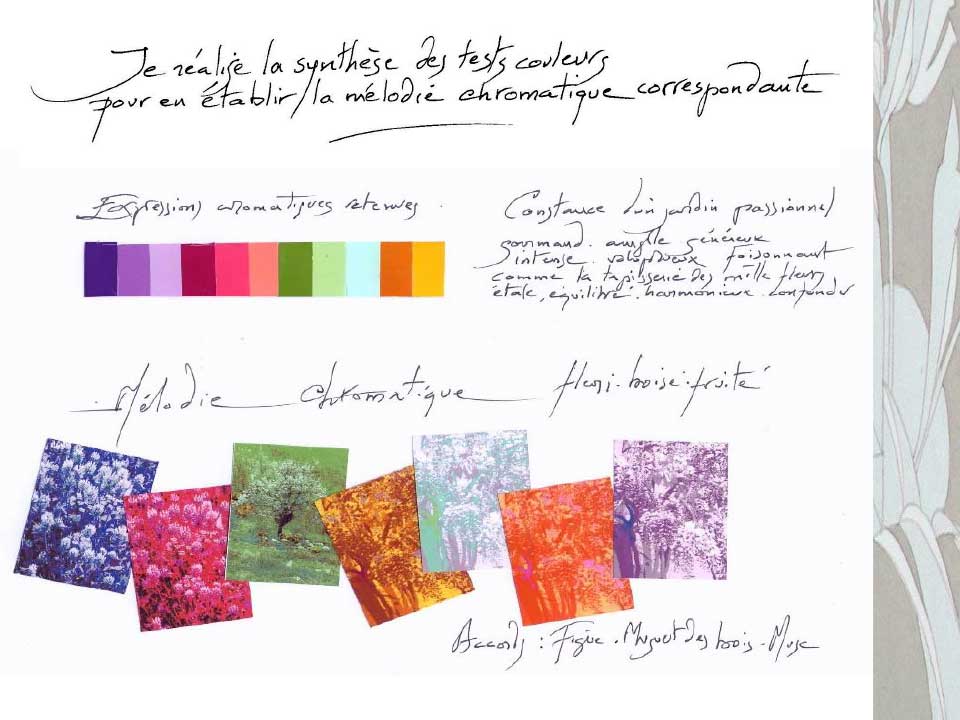 Je réalise la synthèse des tests couleurs
pour en établir la mélodie chromatique correspondante
Expressions aromatiques retenues.
Constance d'un jardin passionnel
gourmand. ample généreux
intense. voluptueux foisonnant
comme la tapisserie des mille fleurs
étale, équilibré. harmonieux.
Mélodie chromatique fleuri. boisé. fruité
Accords : Figue. Muguet des bois. Musc